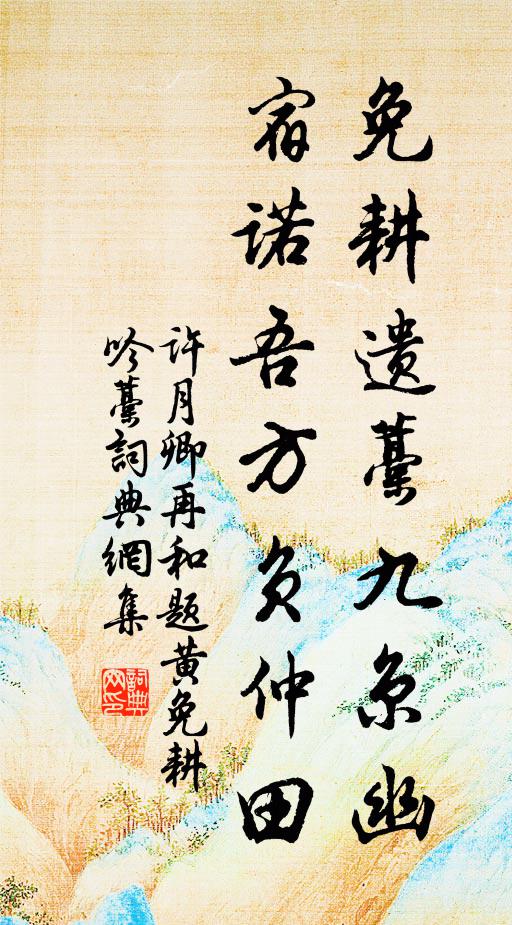 免耕遗藁九京幽
宿诺吾方负仲田
许月卿再和题黄免耕
吟藁詞典網集
詞典网印